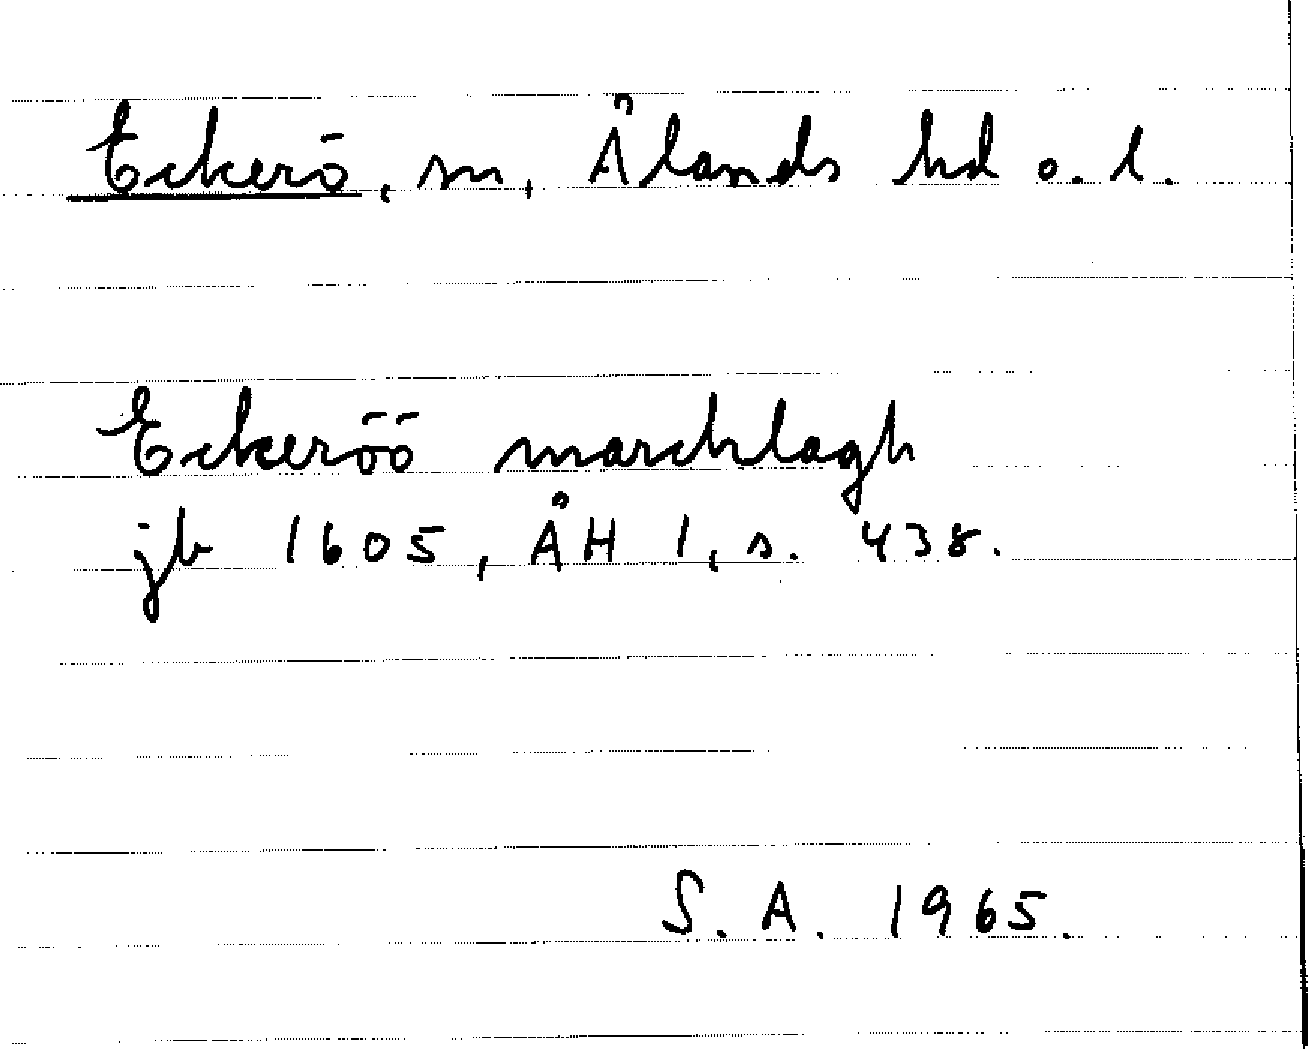 Eckerö, sn, Ålands hd o. l.
Eckeröö marchlagh
jb 1605, ÅH 1, s. 438.
S. A. 1965.